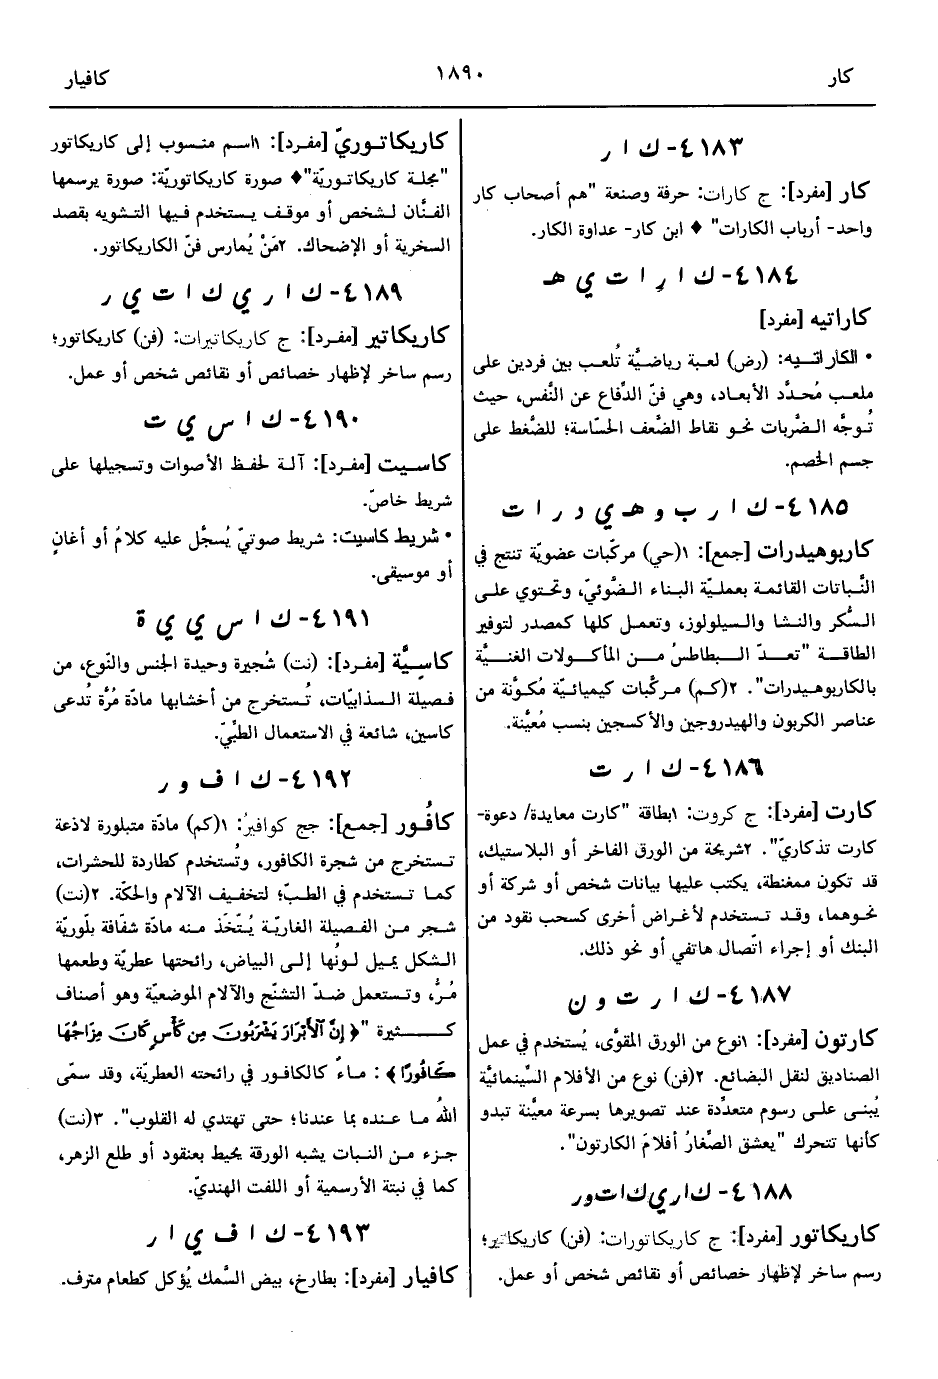 كار
١٨٩٠
كافيار
٤١٨٣- ك ا ر
كار [مفرد]: ج كارات: حرفة وصنعة "هم أصحاب كار
واحد- أرباب الكارات" ♦ ابن كار- عداوة الكار.
٤١٨٤- ك ا ر ا ت ي هـ
كاراتيه [مفرد]
• الكاراتيه: (رض) لعبة رياضيَّة تُلعب بين فردين على
ملعب مُحدَّد الأبعاد، وهي فنّ الدِّفاع عن النَّفس، حيث
تُوجَّه الضَّربات نحو نقاط الضَّعف الحسَّاسة؛ للضَّغط على
جسم الخصم.
٤١٨٥- ك ا ر ب و هـ ي د ر ا ت
كاربوهيدرات [جمع]: ١(حي) مركّبات عضويّة تنتج في
النَّباتات القائمة بعمليّة البناء الضَّوئيّ، وتحتوي على
السُّكر والنشا والسيلولوز، وتعمل كلها كمصدر لتوفير
الطاقة "تعدّ البطاطسُ من المأكولات الغنيَّة
بالكاربوهيدرات". ٢(كم) مركَّبات كيميائيَّة مُكوَّنة من
عناصر الكربون والهيدروجين والأكسجين بنسب مُعيَّنة.
٤١٨٦- ك ا ر ت
كارت [مفرد]: ج كروت: ١بطاقة "كارت معايدة/ دعوة-
كارت تذكاريّ". ٢شريحة من الورق الفاخر أو البلاستيك،
قد تكون ممغنطة، يكتب عليها بيانات شخص أو شركة أو
نحوهما، وقد تستخدم لأغراض أخرى كسحب نقود من
البنك أو إجراء اتّصال هاتفي أو نحو ذلك.
٤١٨٧- ك ا ر ت و ن
كارتون [مفرد]: ١نوع من الورق المقوَّى، يُستخدم في عمل
الصناديق لنقل البضائع. ٢(فن) نوع من الأفلام السِّينمائيَّة
يُبنى على رسوم متعدِّدة عند تصويرها بسرعة معيَّنة تبدو
كأنها تتحرك "يعشق الصِّغارُ أفلامَ الكارتون".
٤١٨٨- ك ا ر ي ك ا ت و ر
كاريكاتور [مفرد]: ج كاريكاتورات: (فن) كاريكاتير؛
رسم ساخر لإظهار خصائص أو نقائص شخص أو عمل.
كاريكاتوريّ [مفرد]: ١اسم منسوب إلى كاريكاتور
"مجلة كاريكاتوريّة"♦ صورة كاريكاتوريّة: صورة يرسمها
الفنَّان لشخص أو موقف يستخدم فيها التشويه بقصد
السخرية أو الإضحاك. ٢مَنْ يُمارس فنّ الكاريكاتور.
٤١٨٩- ك ا ر ي ك ا ت ي ر
كاريكاتير [مفرد]: ج كاريكاتيرات: (فن) كاريكاتور؛
رسم ساخر لإظهار خصائص أو نقائص شخص أو عمل.
٤١٩٠- ك ا س ي ت
كاسيت [مفرد]: آلة لحفظ الأصوات وتسجيلها على
شريط خاصّ.
• شريط كاسيت: شريط صوتيّ يُسجَّل عليه كلامٌ أو أغانٍ
أو موسيقى.
٤١٩١- ك ا س ي ي ة
كاسِيَّة [مفرد]: (نت) شُجيرة وحيدة الجنس والنَّوع، من
فصيلة السذابيّات، تُستخرج من أخشابها مادّة مُرَّة تُدعى
كاسين، شائعة في الاستعمال الطبِّيّ.
٤١٩٢- ك ا ف و ر
كافُور [جمع]: جج كوافيرُ: ١(كم) مادّة متبلورة لاذعة
تستخرج من شجرة الكافور، وتُستخدم كطاردة للحشرات،
كما تستخدم في الطبّ؛ لتخفيف الآلام والحكّة. ٢(نت)
شجر من الفصيلة الغاريّة يُتّخَذ منه مادّة شفّافة بلّوريّة
الشكل يميل لونُها إلى البياض، رائحتها عطريّة وطعمها
مُرّ، وتستعمل ضدّ التشنّج والآلام الموضعيّة وهو أصناف
كثيرة "﴿ إِنَّ الأَبْرَارَ يَشْرَبُونَ مِن كَأْسٍ كَانَ مِزَاجُهَا
كَافُورًا ﴾: ماء كالكافور في رائحته العطريّة، وقد سمّى
اللهُ ما عنده بما عندنا؛ حتى تهتدي له القلوب". ٣(نت)
جزء من النبات يشبه الورقة يحيط بعنقود أو طلع الزهر،
كما في نبتة الأرسمية أو اللفت الهنديّ.
٤١٩٣- ك ا ف ي ا ر
كافيار [مفرد]: بطارخ، بيض السَّمك يُؤكل كطعام مترف.